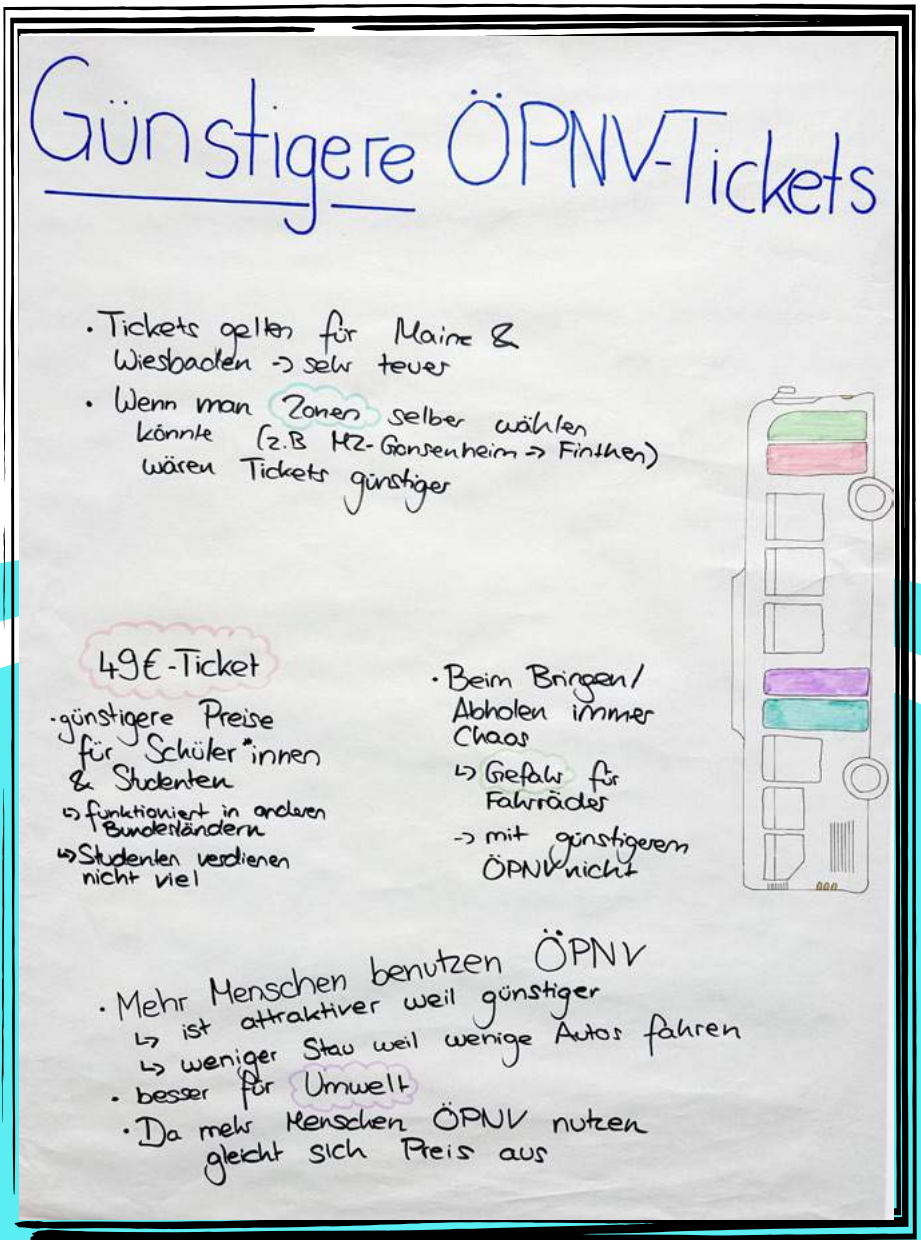 Günstigere ÖPNV-Tickets
· Tickets gelten für Mainz &
Wiesbaden -> sehr teuer
· Wenn man Zonen selber wählen
könnte (z.B MZ-Gonsenheim -> Finthen)
wären Tickets günstiger
49€-Ticket
· günstigere Preise
für Schüler*innen
& Studenten
↳ funktioniert in anderen
Bundesländern
↳ Studenten verdienen
nicht viel
· Beim Bringen/
Abholen immer
Chaos
↳ Gefahr für
Fahrräder
-> mit günstigerem
ÖPNV nicht
· Mehr Menschen benutzen ÖPNV
↳ ist attraktiver weil günstiger
↳ weniger Stau weil wenige Autos fahren
· besser für Umwelt
· Da mehr Menschen ÖPNV nutzen
gleicht sich Preis aus